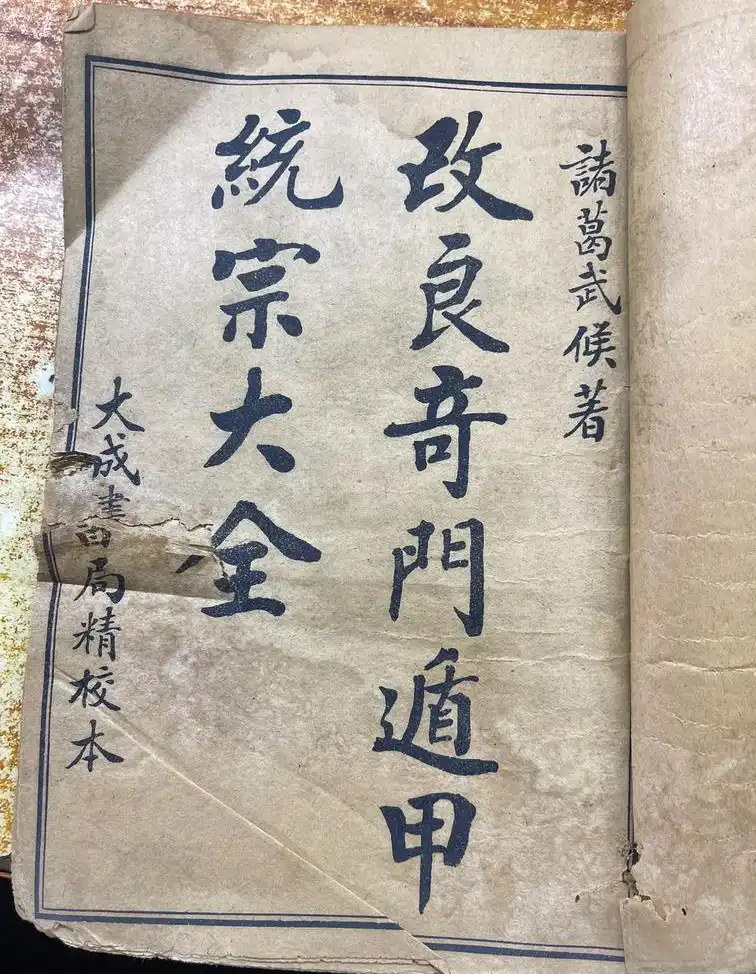 諸葛武候著
改良奇門遁甲
統宗大全
大成書局精校本